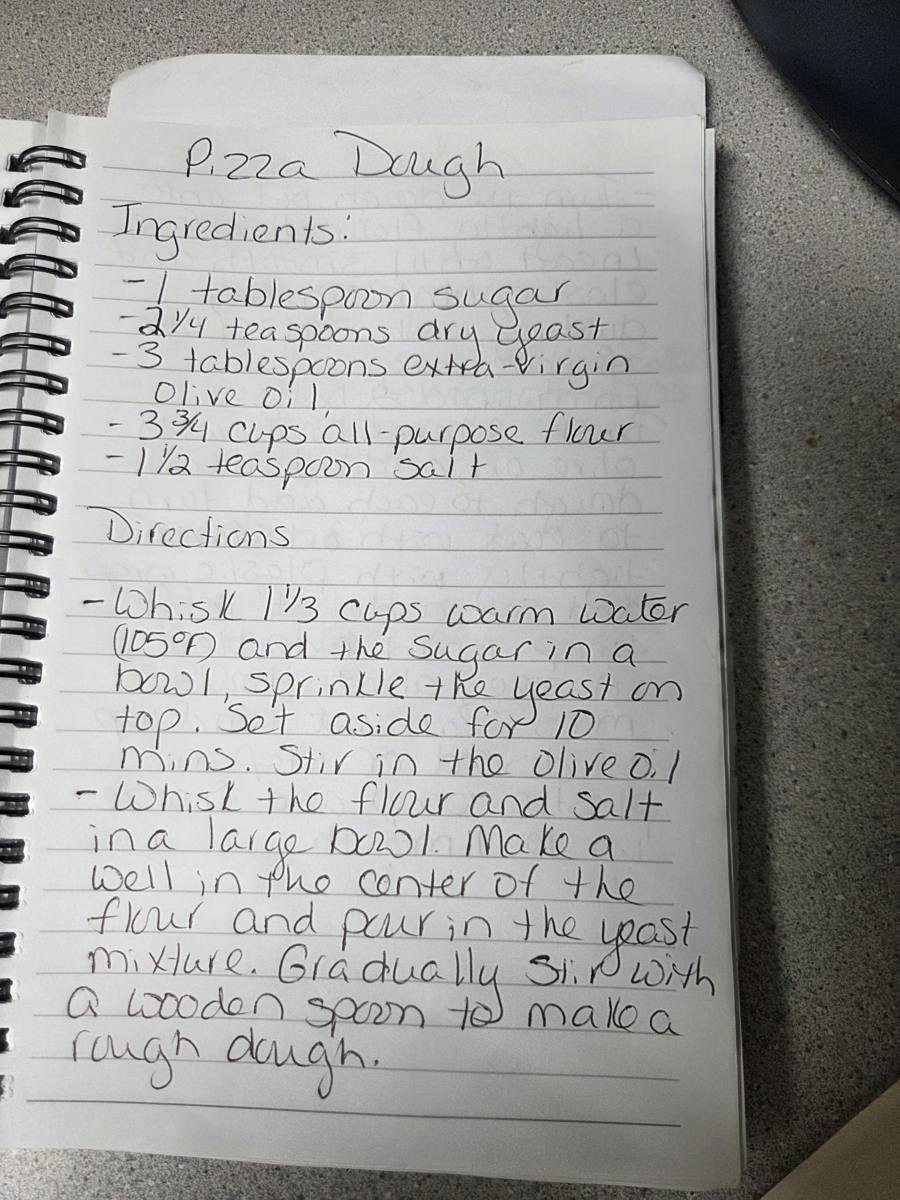 Pizza Dough
Ingredients:
-1 tablespoon sugar
-2 1/4 teaspoons dry yeast
-3 tablespoons extra-virgin
olive oil
- 3 3/4 cups all-purpose flour
-1 1/2 teaspoon salt
Directions
-Whisk 1 1/3 cups warm water
(105°F) and the sugar in a
bowl, sprinkle the yeast on
top. Set aside for 10
mins. Stir in the olive oil
- Whisk the flour and salt
in a large bowl. Make a
well in the center of the
flour and pour in the yeast
mixture. Gradually stir with
a wooden spoon to make a
rough dough.